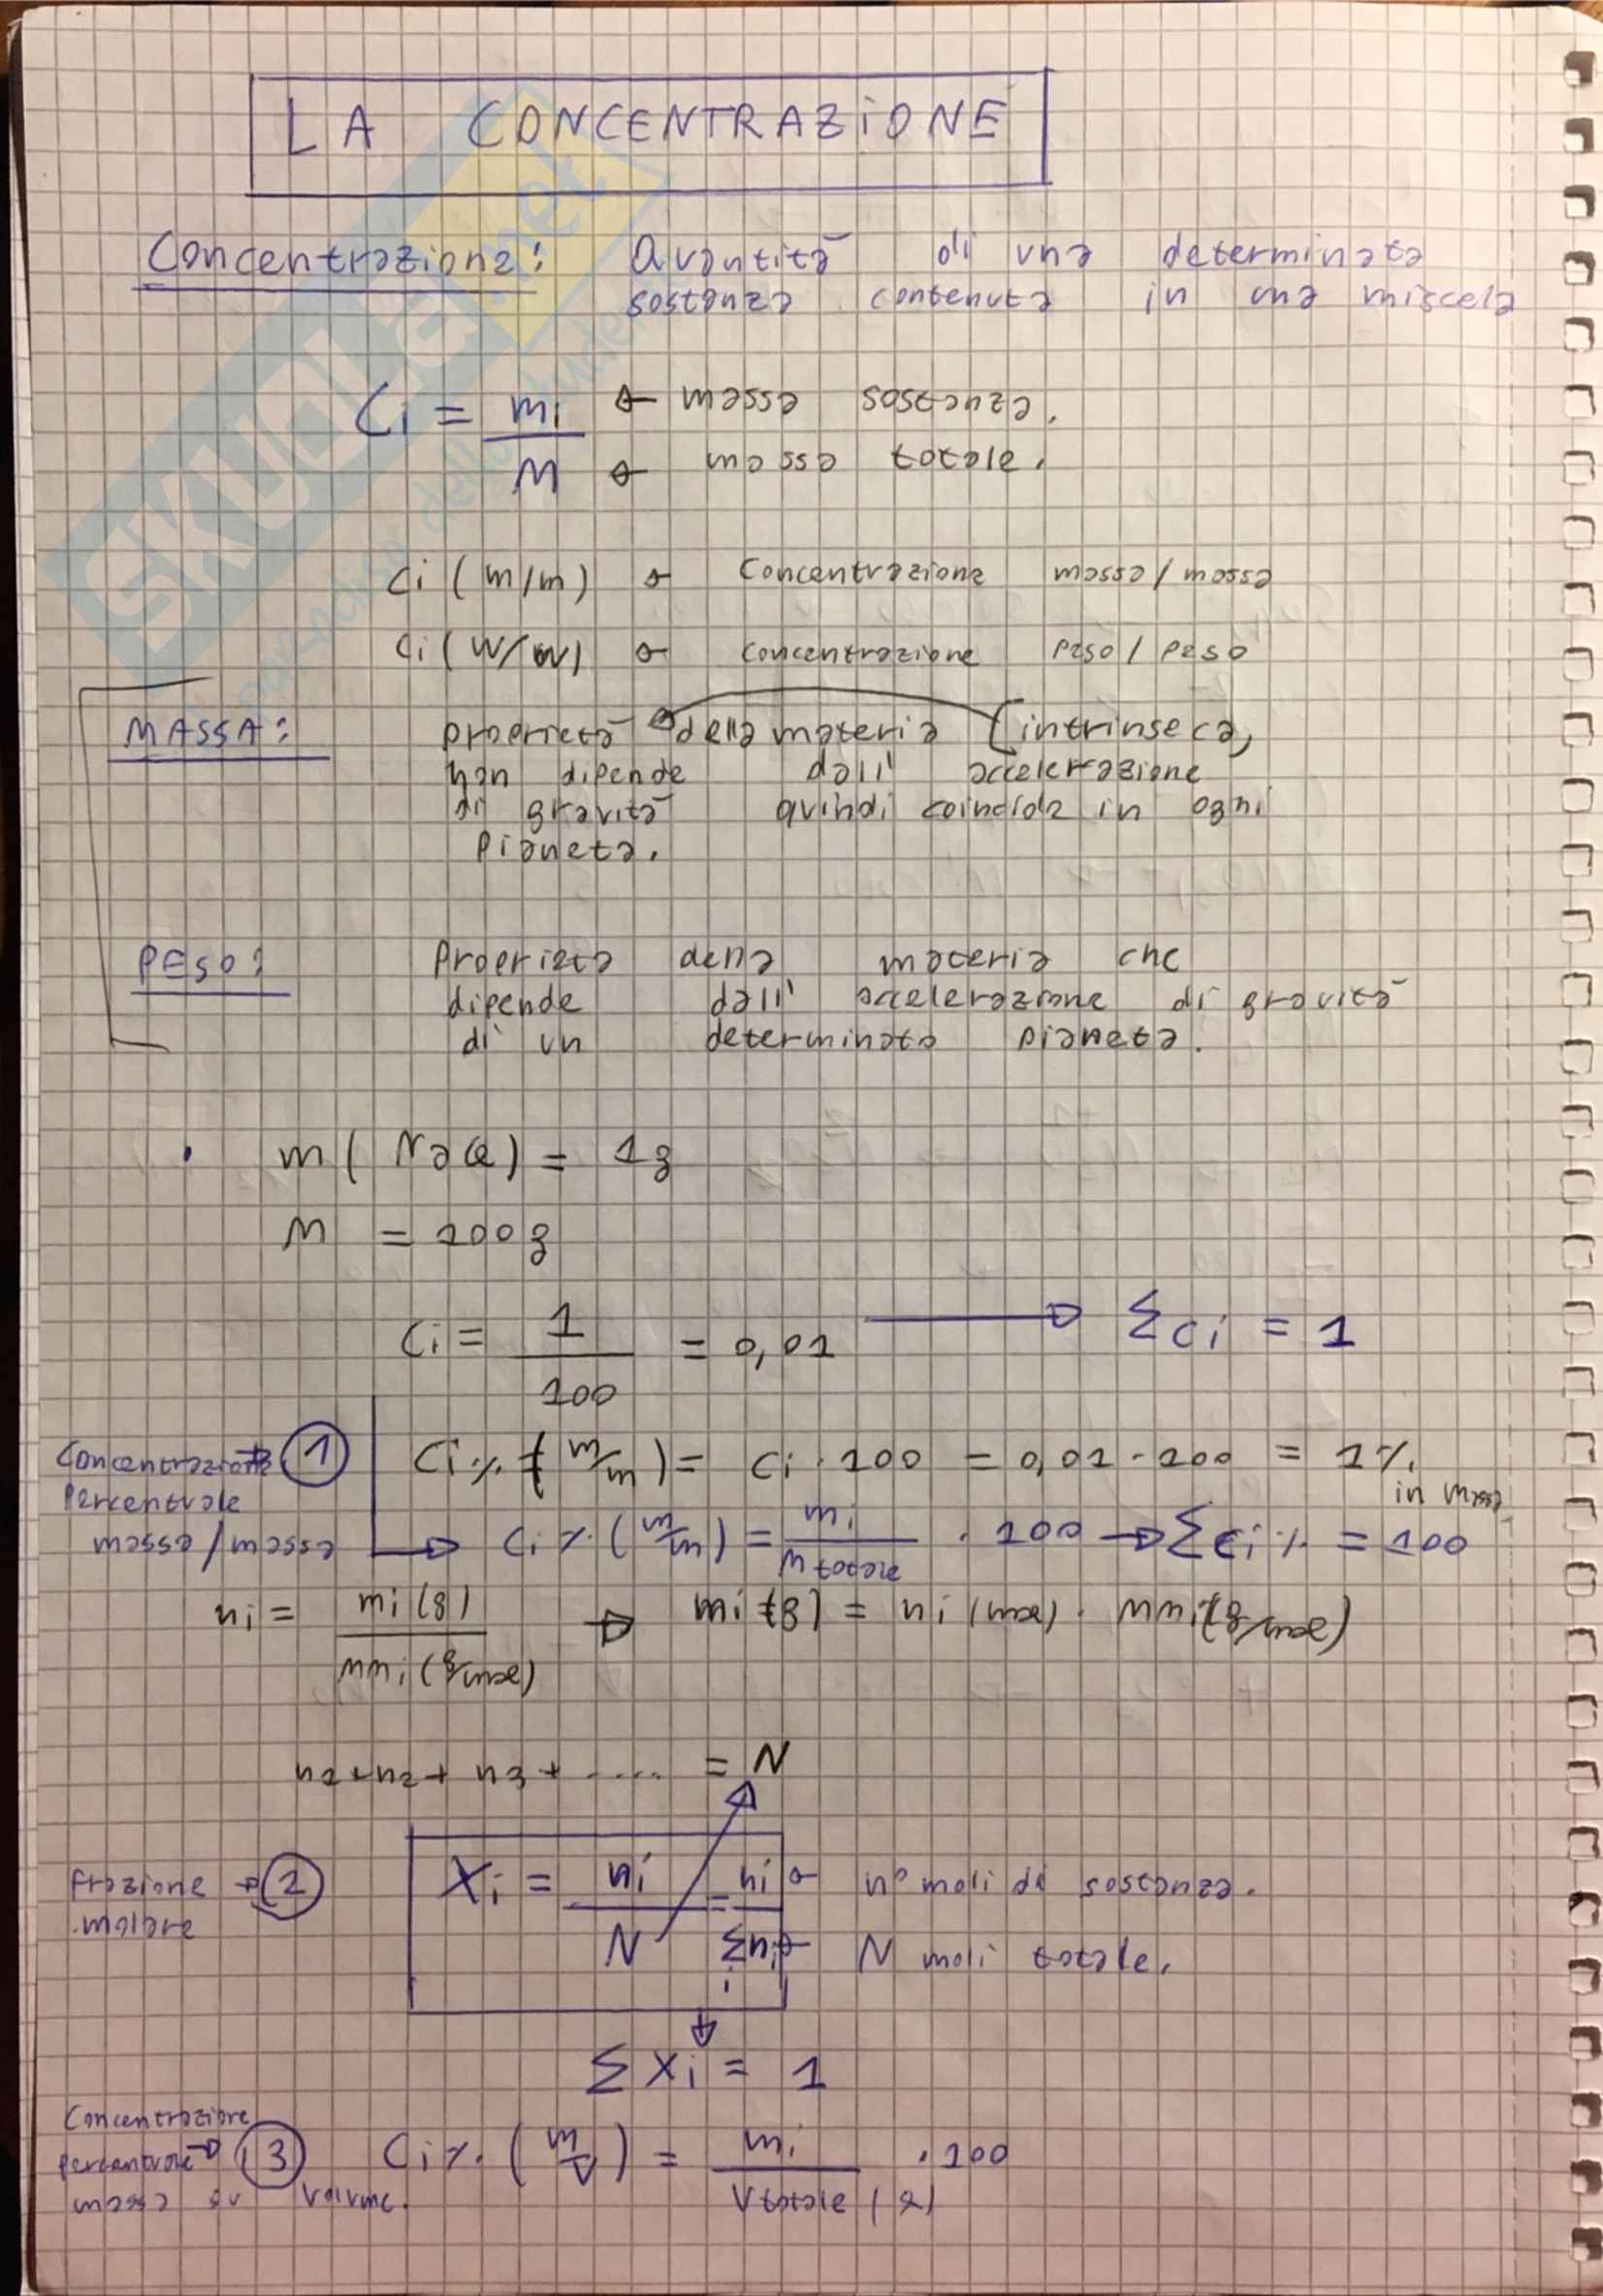 LA CONCENTRAZIONE
Concentrazione: Quantità di una determinata
sostanza contenuta in una miscela
Ci = mi / M ← massa sostanza.
← massa totale.
Ci (m/m) → Concentrazione massa/massa
Ci (W/W) → concentrazione peso/peso
MASSA: proprietà della materia (intrinseca,
non dipende dall' accelerazione
di gravità quindi coincide in ogni
pianeta.
PESO: Proprietà della materia che
dipende dall' accelerazione di gravità
di un determinato pianeta.
• m (NaCl) = 1g
M = 100g
Ci = 1/100 = 0,01 → Σci = 1
Concentrazione → 1 Ci% (m/m) = Ci · 100 = 0,01 · 100 = 1%
Percentuale in massa
massa/massa → Ci% (m/m) = mi / M totale · 100 → Σci% = 100
ni = mi (g) / MMi (g/mol) → mi (g) = ni (mol) · MMi (g/mol)
n1+n2+ n3+ ..... = N
frazione → 2 Xi = ni / N = ni / Σni ← n° moli di sostanza.
molare
i
← N moli totale.
ΣXi = 1
Concentrazione
percentuale → 3 Ci% (m/V) = mi / Vtotale (l) · 100
massa su volume.
SKUOLa.net